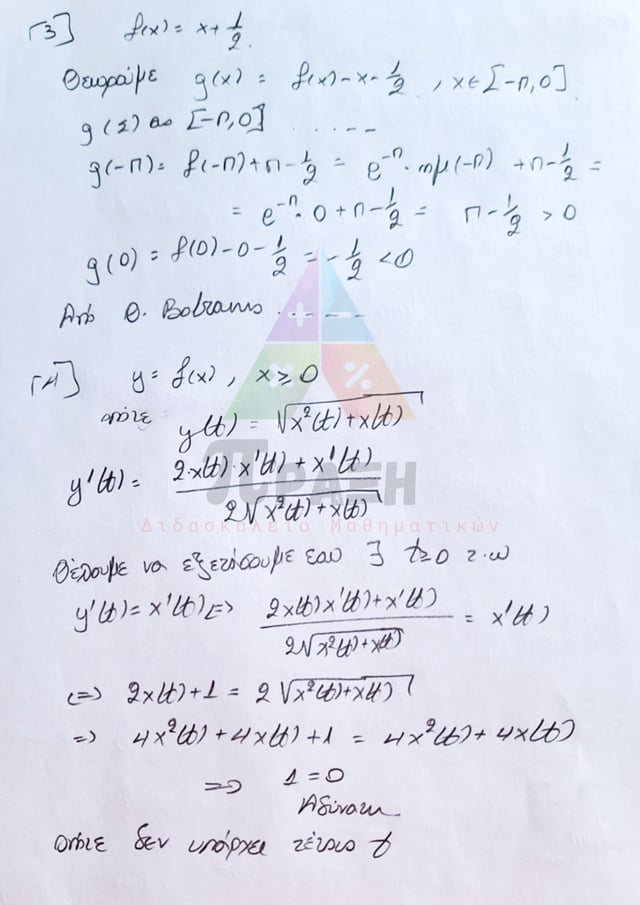 [3] f(x) = x + 1/2.
Θεωρούμε g(x) = f(x) - x - 1/2, x ∈ [-π, 0]
g (Σ) στο [-π, 0] . . . . . --
g(-π) = f(-π) + π - 1/2 = e^-π · ημ(-π) + π - 1/2 =
= e^-π · 0 + π - 1/2 = π - 1/2 > 0
g(0) = f(0) - 0 - 1/2 = -1/2 < 0
Από Θ. Bolzano . . . . --
[4] y = f(x), x ≥ 0
οπότε y(t) = √(x²(t) + x(t))
y'(t) = (2·x(t)·x'(t) + x'(t)) / (2√(x²(t) + x(t)))
πΡΑΞΗ
Διδασκαλείο Μαθηματικών
Θέλουμε να εξετάσουμε εαν ∃ t≥0 τ.ω
y'(t) = x'(t) <=> (2x(t)x'(t) + x'(t)) / (2√(x²(t) + x(t))) = x'(t)
<=> 2x(t) + 1 = 2√(x²(t) + x(t))
=> 4x²(t) + 4x(t) + 1 = 4x²(t) + 4x(t)
=> 1 = 0
Αδύνατη
Οπότε δεν υπάρχει τέτοιο t